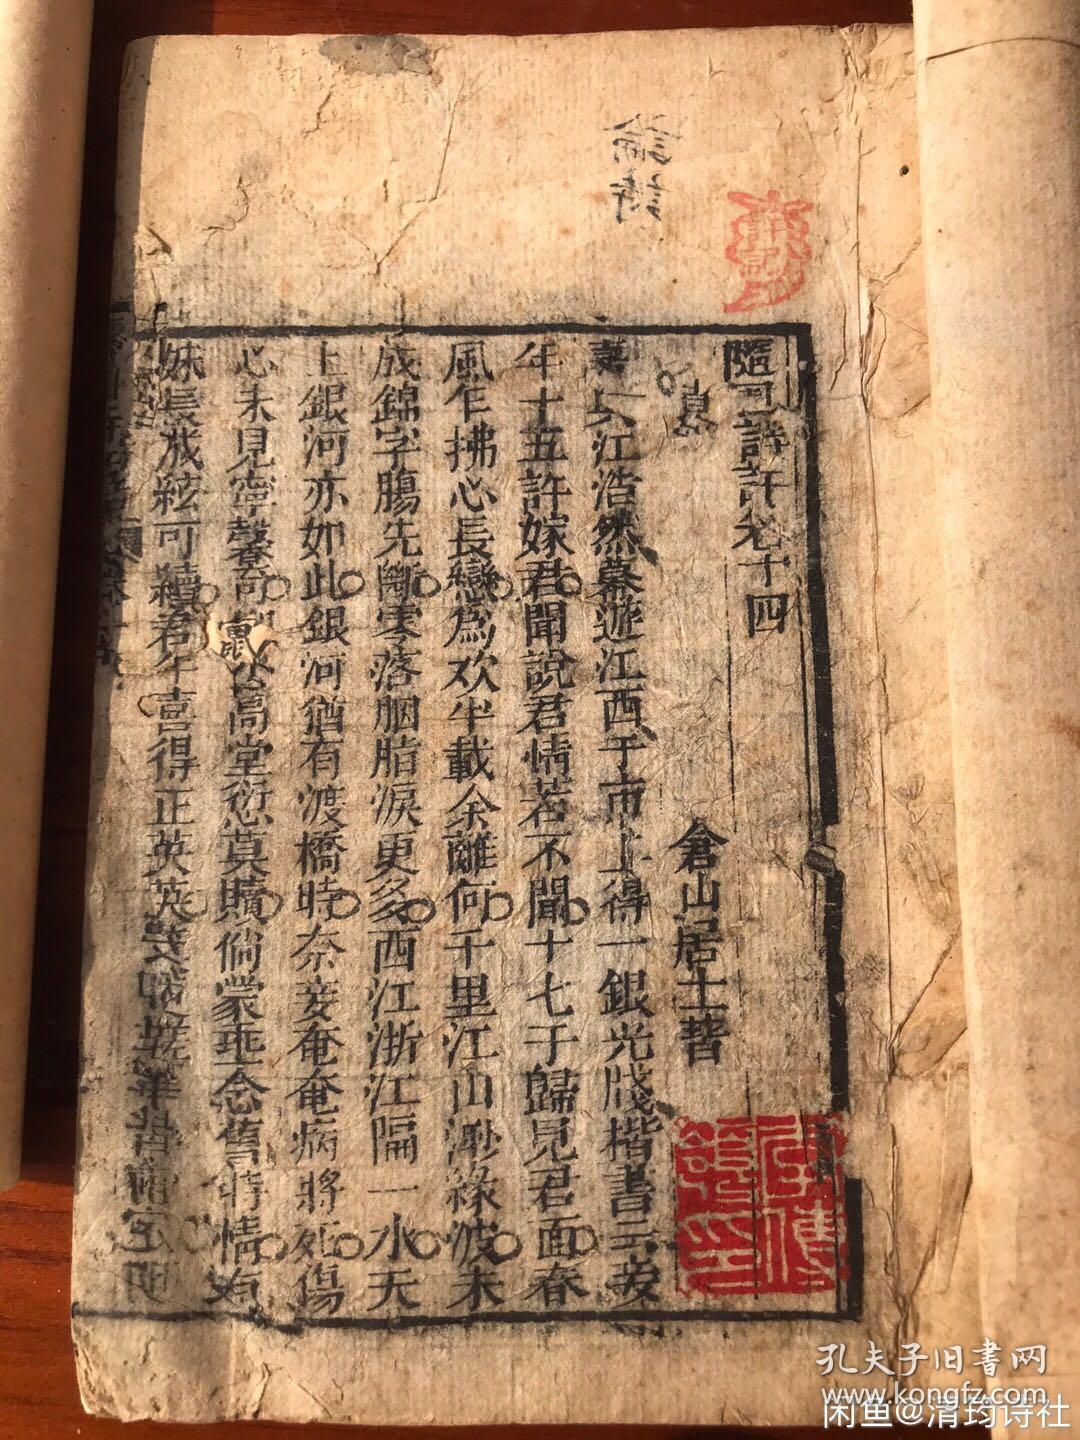 論詩
隨園詩話卷十四
倉山居士著
嘉興江浩然幕遊江西于市上得一銀光牋楷書云妾
年十五許嫁君聞說君情若不聞十七于歸見君面春
風乍拂心長戀為歡半載余離何千里江山漸綠波未
成錦字腸先斷零落胭脂淚更多西江浙江隔一水天
上銀河亦如此銀河猶有渡橋時奈妾奄奄病將死傷
心未見寧馨高堂愆莫贖倘蒙垂念舊時情有
妹長成絃可續君年喜得正英英
孔夫子旧書网
www.kongfz.com
闲鱼@清筠诗社